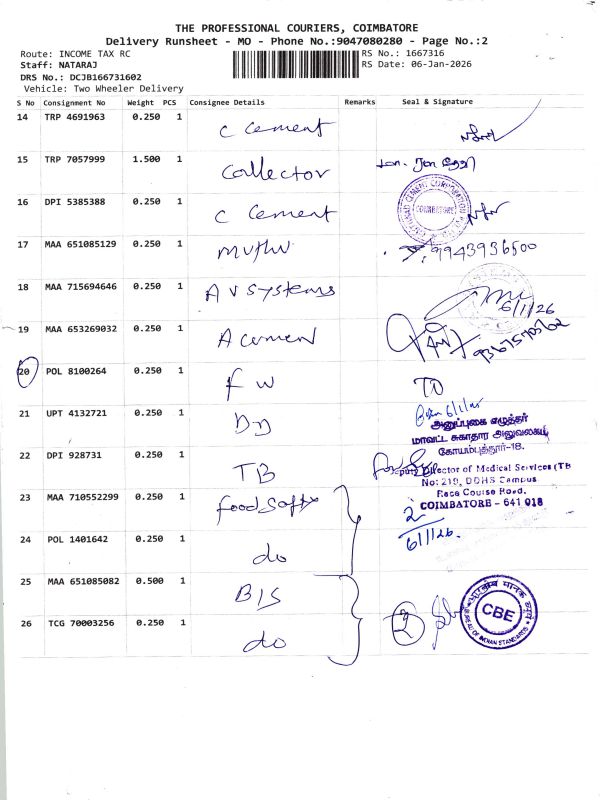 THE PROFESSIONAL COURIERS, COIMBATORE
Delivery Runsheet - MO - Phone No.:9047080280 - Page No.:2
Route: INCOME TAX RC
RS No.: 1667316
Staff: NATARAJ
RS Date: 06-Jan-2026
DRS No.: DCJB166731602
Vehicle: Two Wheeler Delivery
S No Consignment No Weight PCS Consignee Details Remarks Seal & Signature
14 TRP 4691963 0.250 1 C Cement
15 TRP 7057999 1.500 1 Collector
16 DPI 5385388 0.250 1 C Cement
COIMBATORE
17 MAA 651085129 0.250 1 muthu 9943936500
18 MAA 715694646 0.250 1 A V Systems
6/1/26
19 MAA 653269032 0.250 1 A cement
20 POL 8100264 0.250 1 F W
21 UPT 4132721 0.250 1 DD
அனுப்புகை எழுத்தர்
மாவட்ட சுகாதார அலுவலகம்
கோயம்புத்தூர்-18.
22 DPI 928731 0.250 1 TB
Deputy Director of Medical Services (TB
No: 219, DDHS Campus
Race Course Road,
COIMBATORE - 641 018
23 MAA 710552299 0.250 1 food safty
2
6/1/26.
24 POL 1401642 0.250 1 do
25 MAA 651085082 0.500 1 BIS
भारतीय मानक ब्यूरो
CBE
BUREAU OF INDIAN STANDARDS
26 TCG 70003256 0.250 1 do 2